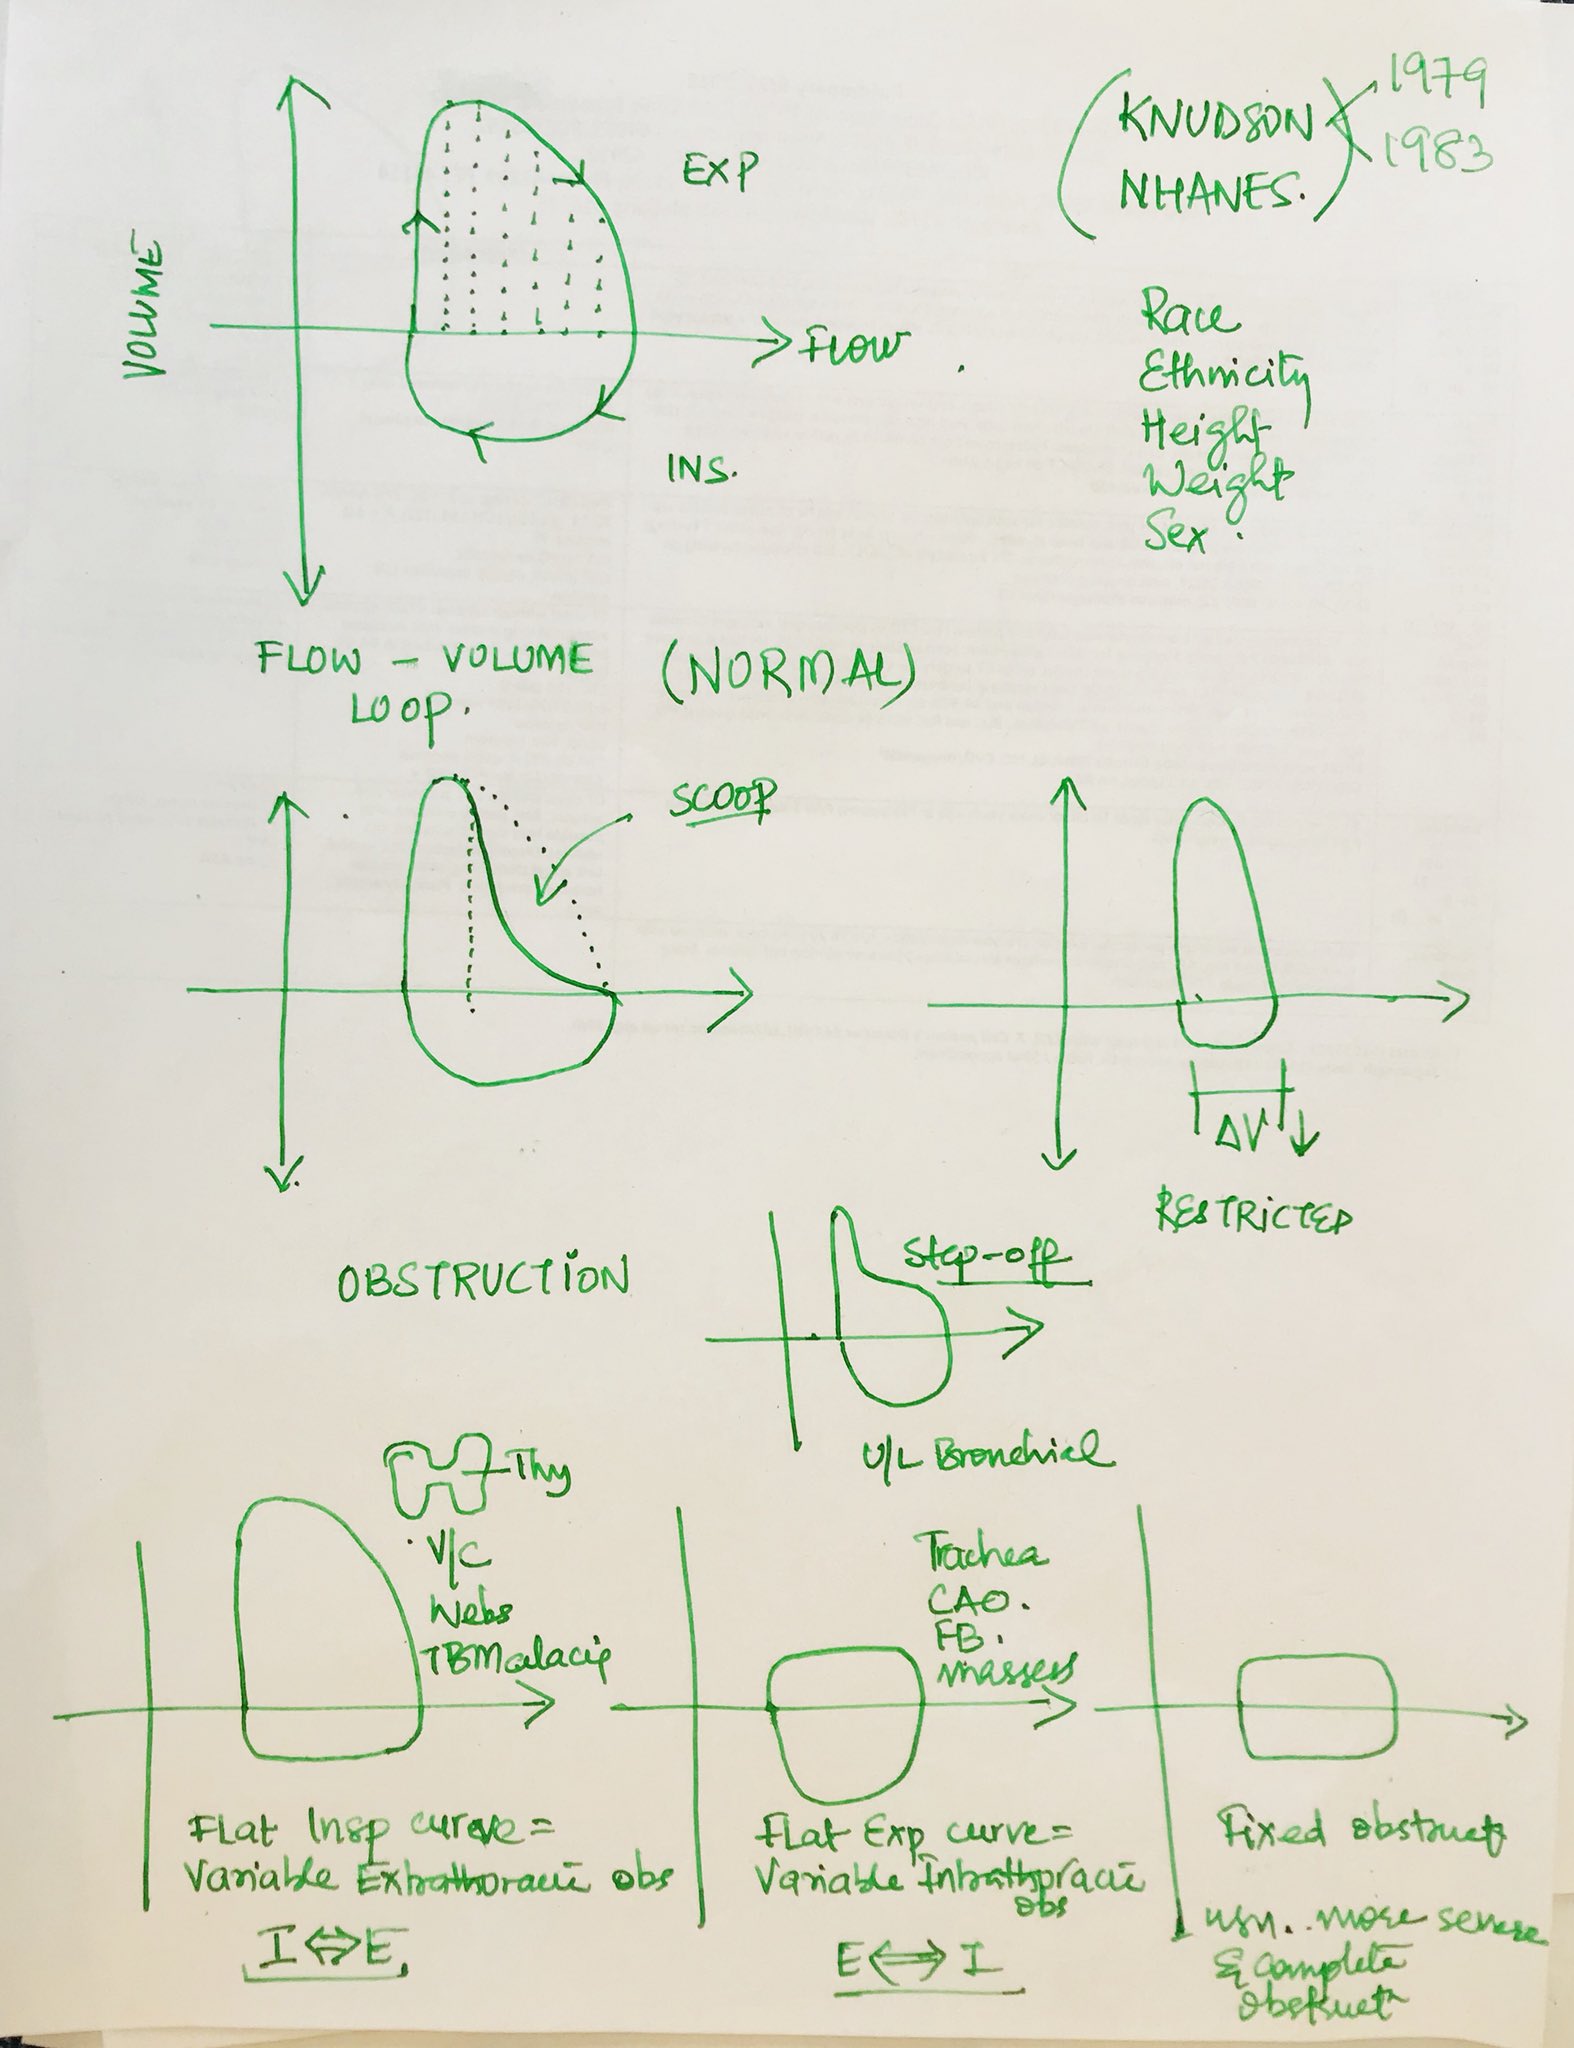 VOLUME
EXP
FLOW
INS.
(KNUDSON
NHANES.)
1979
1983
Race
Ethnicity
Height
Weight
Sex.
FLOW - VOLUME (NORMAL)
LOOP.
SCOOP
OBSTRUCTION
ΔV ↓
RESTRICTED
Step-off
U/L Bronchial
Thy
V/C
Webs
TBMalacia
Flat Insp curve =
Variable Extrathoracic obs
I ⇔ E
Trachea
CAO.
FB.
masses
Flat Exp curve =
Variable Intrathoracic
obs
E ⇔ I
Fixed obstructn
usu.. more severe
& complete
obstructn